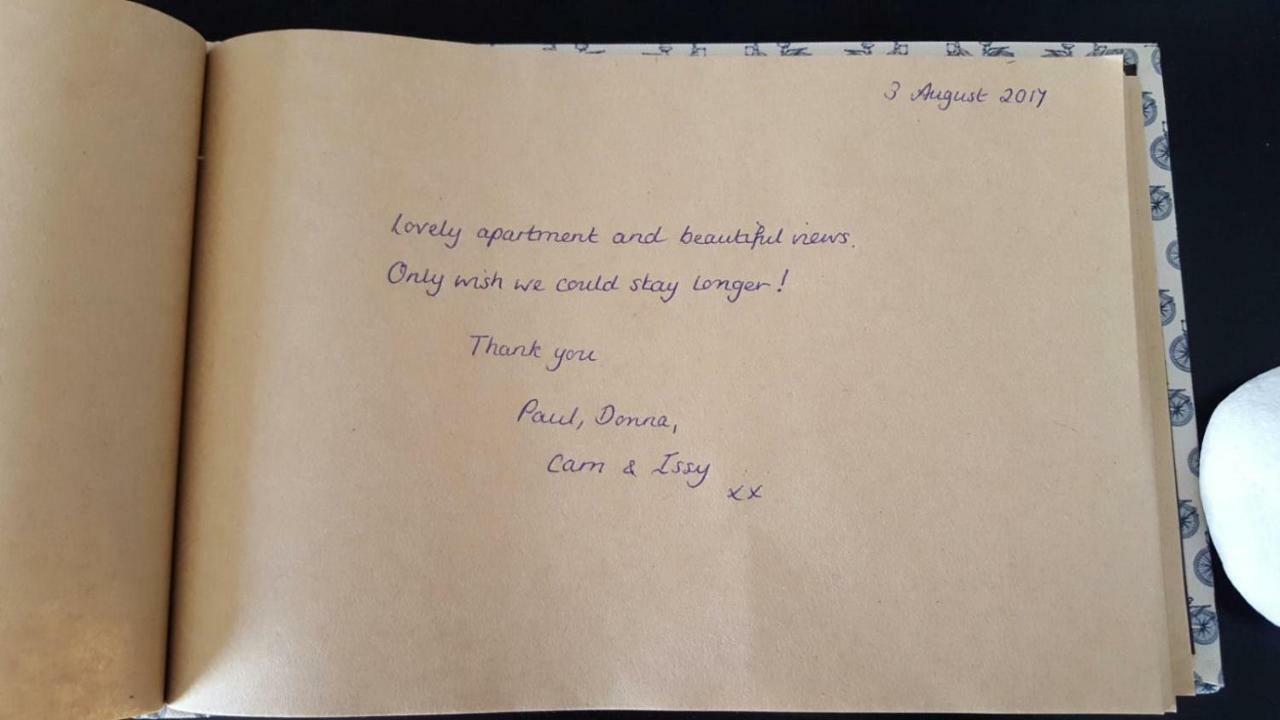 3 August 2017
Lovely apartment and beautiful views.
Only wish we could stay longer!
Thank you
Paul, Donna,
Cam & Issy
xx